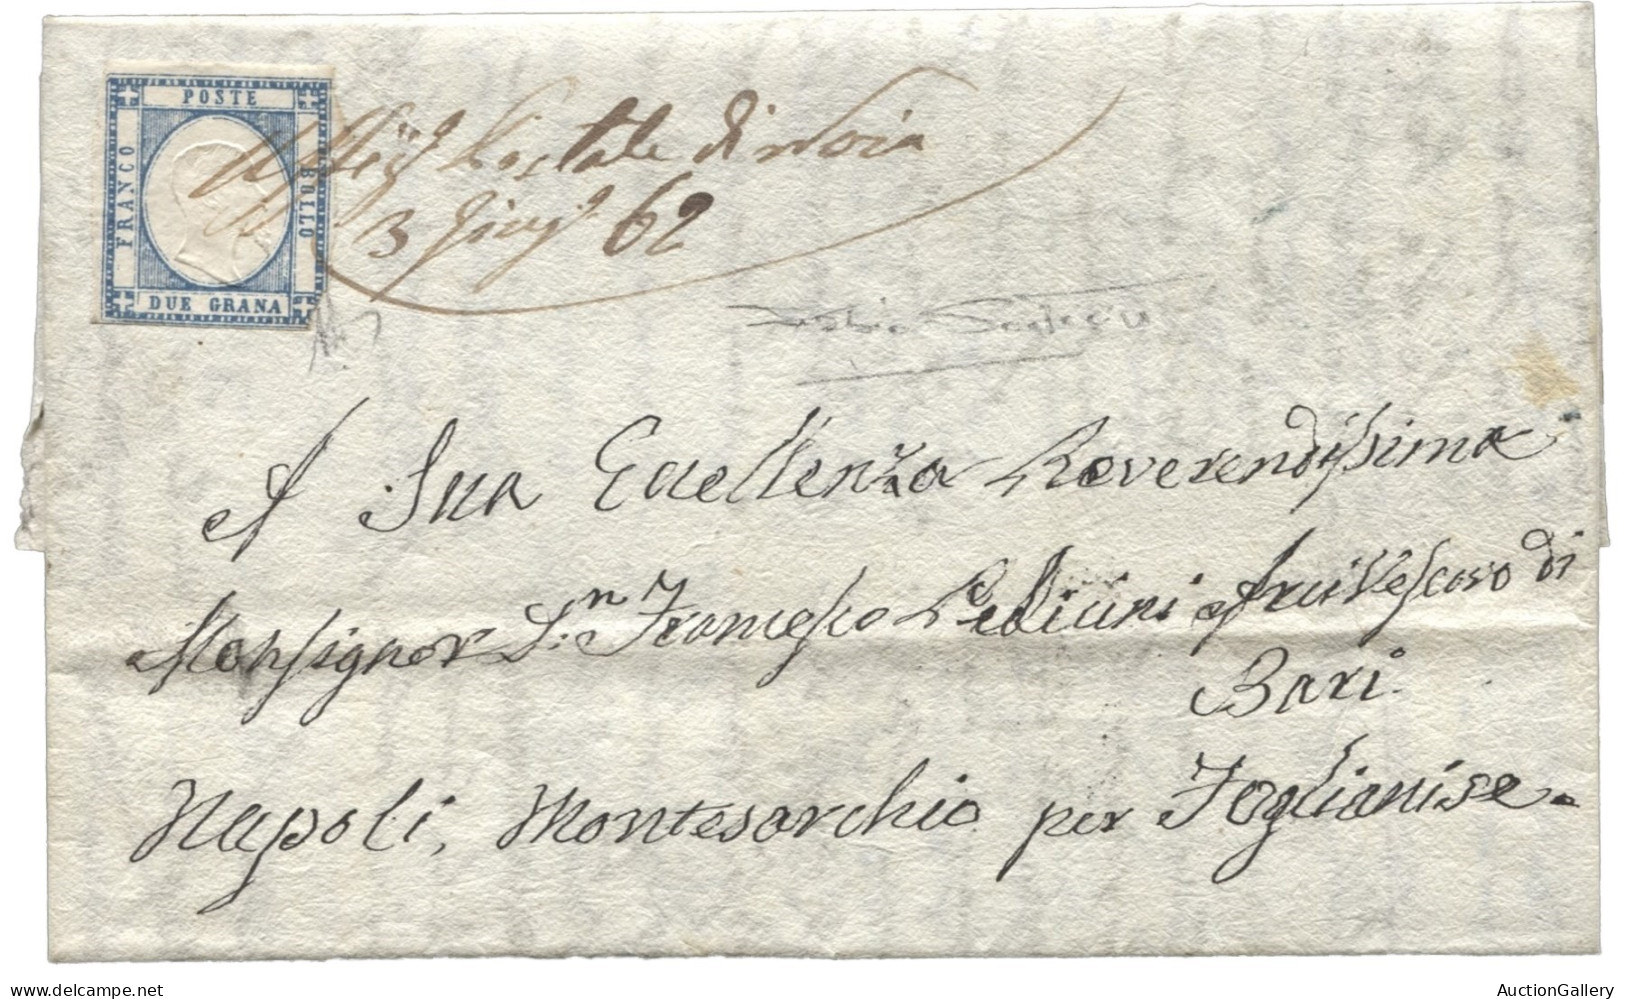 POSTE
FRANCO
BOLLO
DUE GRANA
Postale di Noia
3 Giug 62
A Sua Eccellenza Reverendissima
Monsignor D.n Francesco Pedicini Arcivescovo di
Bari
Napoli, Montesarchio per Foglianise.
www.delcampe.net
AuctionGallery